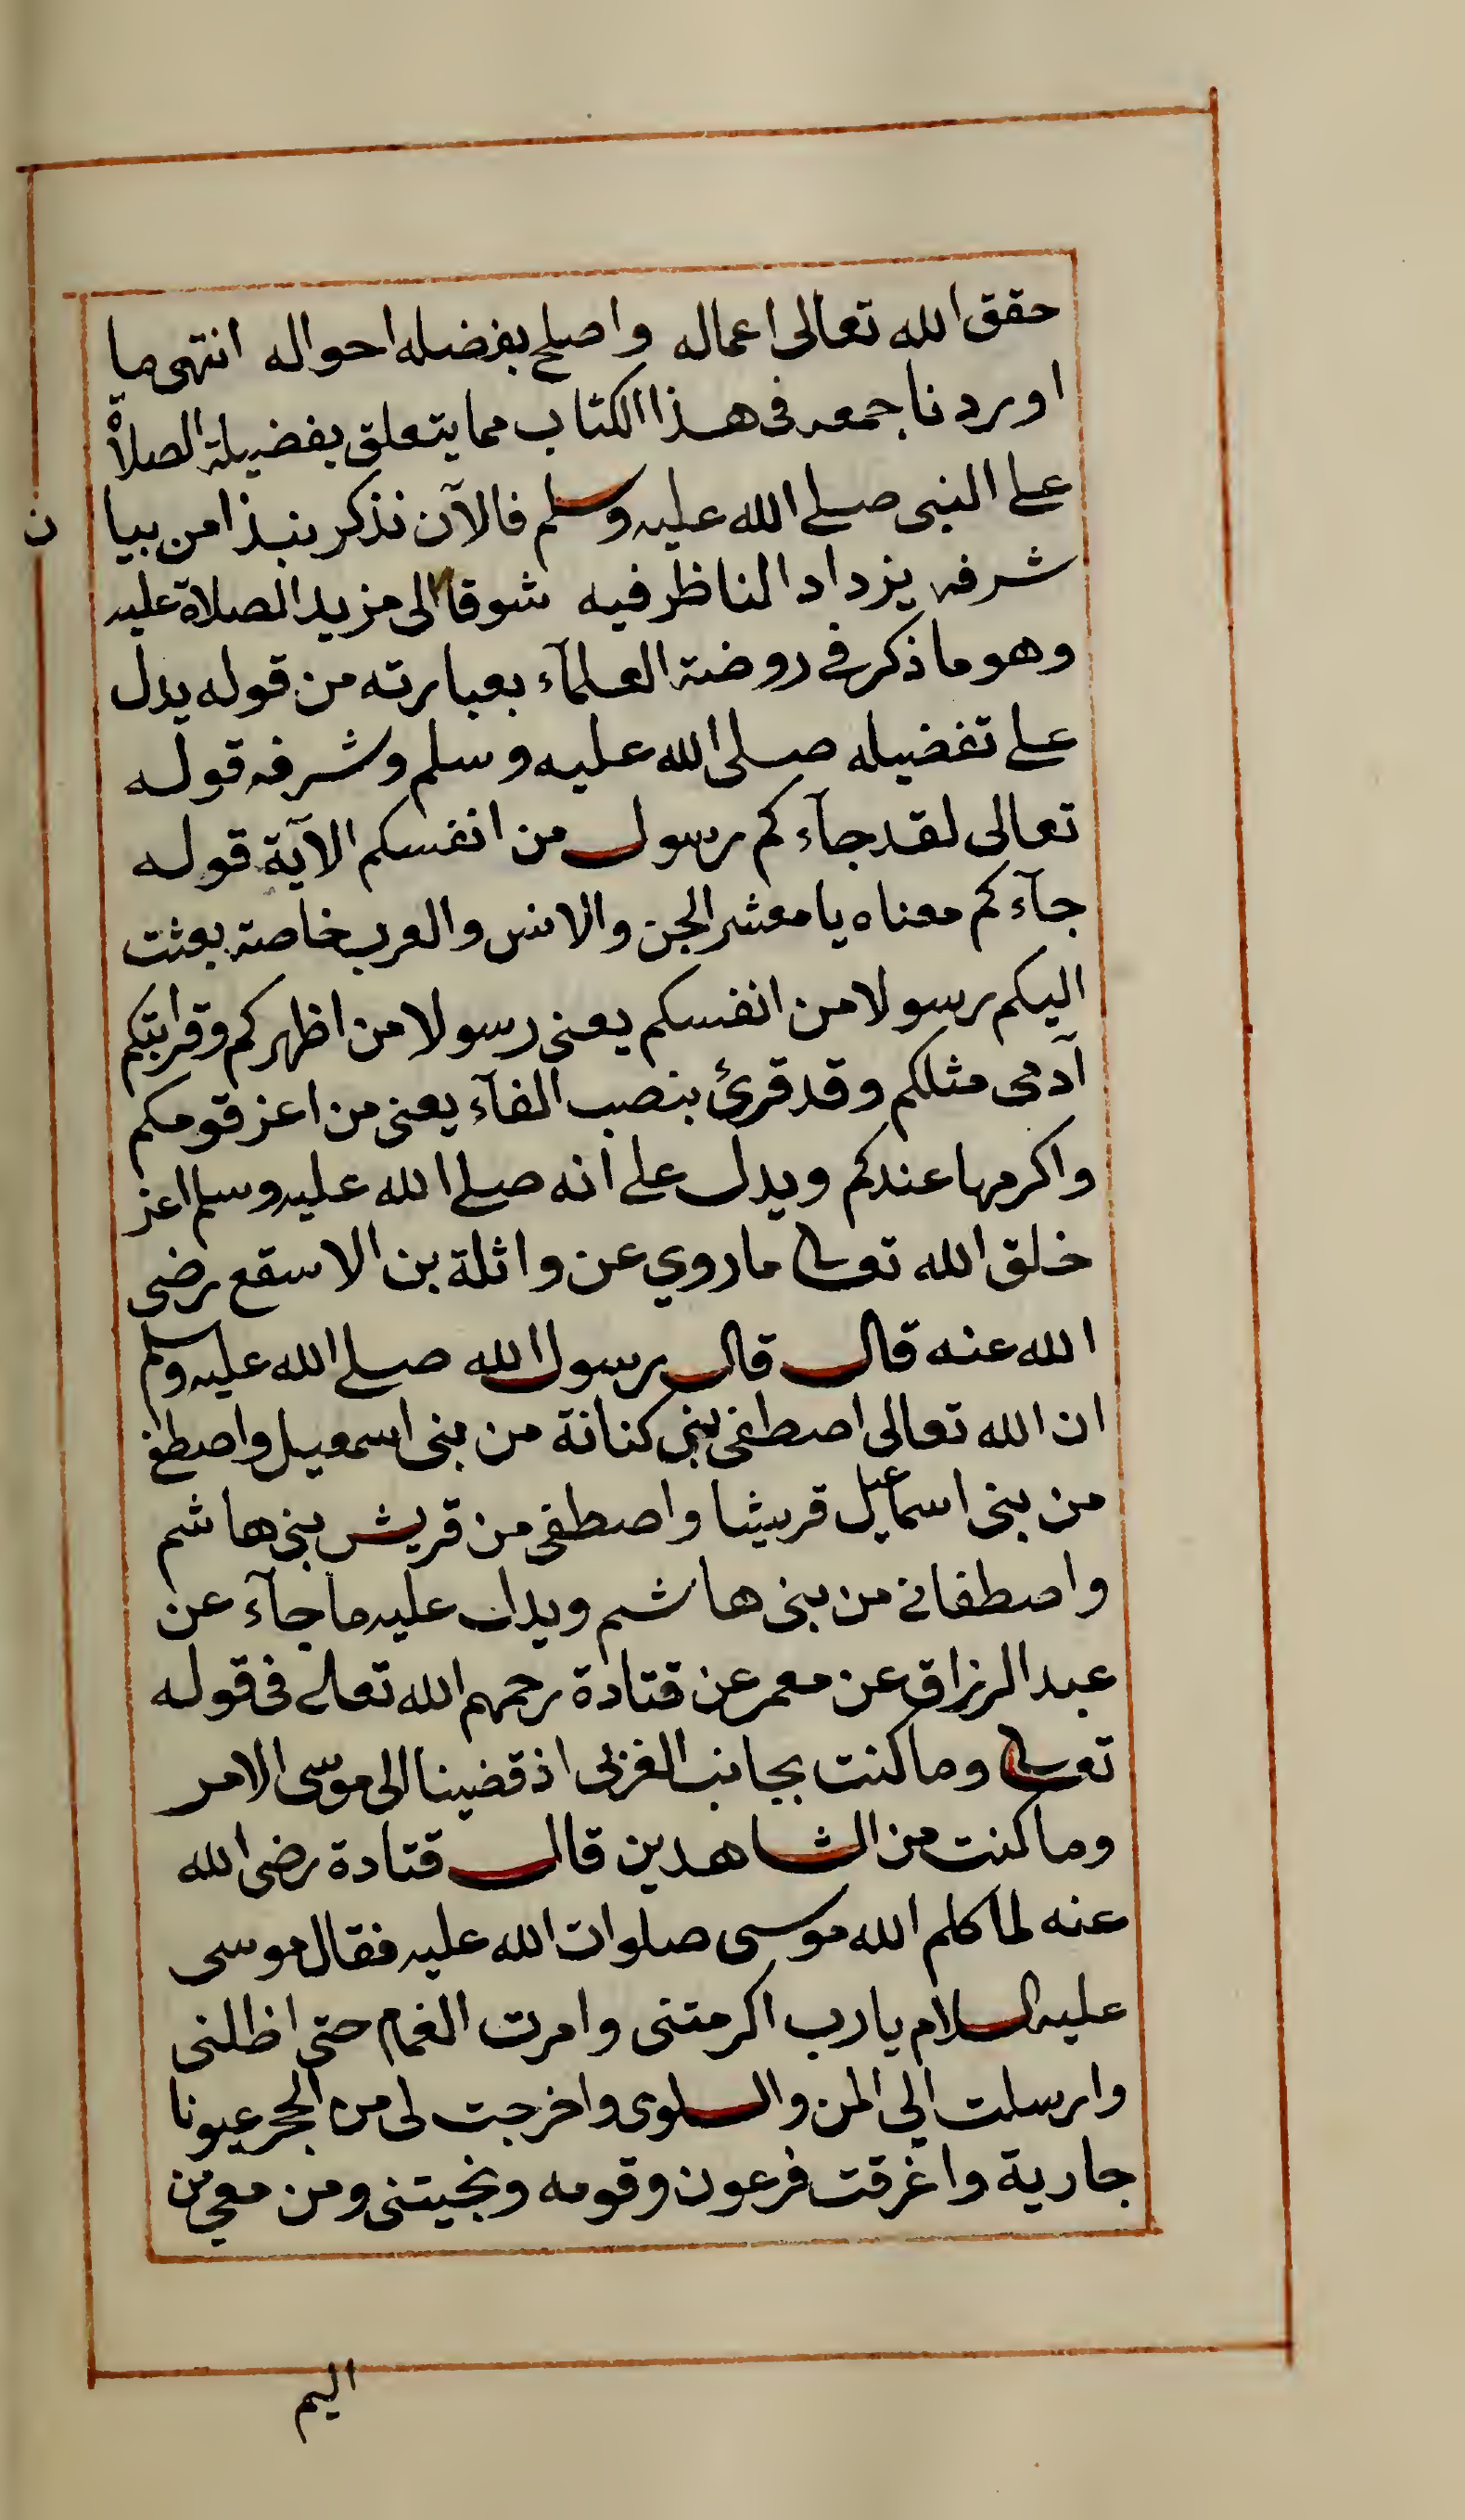 حقق الله تعالى اعماله واصلح بفضله احواله انتهى ما
اوردنا جمعه فى هذا الكتاب مما يتعلق بفضيلة الصلاة
على النبى صلى الله عليه وسلم فالآن نذكر نبذا من بيان
شرفه يزداد الناظر فيه شوقا الى مزيد الصلاة عليه
وهو ما ذكر فى روضة العلمآء بعبارته من قوله يدل
على تفضيله صلى الله عليه وسلم وشرفه قوله
تعالى لقد جآءكم رسول من انفسكم الآية قوله
جآءكم معناه يا معشر الجن والانس والعرب خاصة بعثت
اليكم رسولا من انفسكم يعنى رسولا من اظهركم وقرابتكم
آدمى مثلكم وقد قرئ بنصب الفآء يعنى من اعز قومكم
واكرمها عندكم ويدل على انه صلى الله عليه وسلم اعز
خلق الله تعالى ما روي عن واثلة بن الاسقع رضى
الله عنه قال قال رسول الله صلى الله عليه وسلم
ان الله تعالى اصطفى بنى كنانة من بنى اسمعيل واصطفى
من بنى اسماعيل قريشا واصطفى من قريش بنى هاشم
واصطفانى من بنى هاشم ويدل عليه ما جآء عن
عبد الرزاق عن معمر عن قتادة رحمهم الله تعالى فى قوله
تعالى وما كنت بجانب الغربى اذ قضينا الى موسى الامر
وما كنت من الشاهدين قال قتادة رضى الله
عنه لما كلم الله موسى صلوات الله عليه فقال موسى
عليه السلام يا رب اكرمتنى وامرت الغمام حتى اظلنى
وارسلت الي المن والسلوى واخرجت لى من الحجر عيونا
جارية واغرقت فرعون وقومه ونجيتنى ومن معي من
اليم